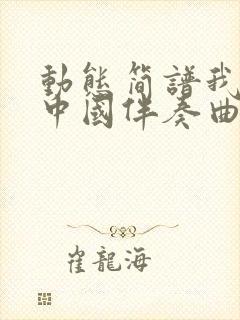 動態简譜我
中國伴奏曲
崔龍海